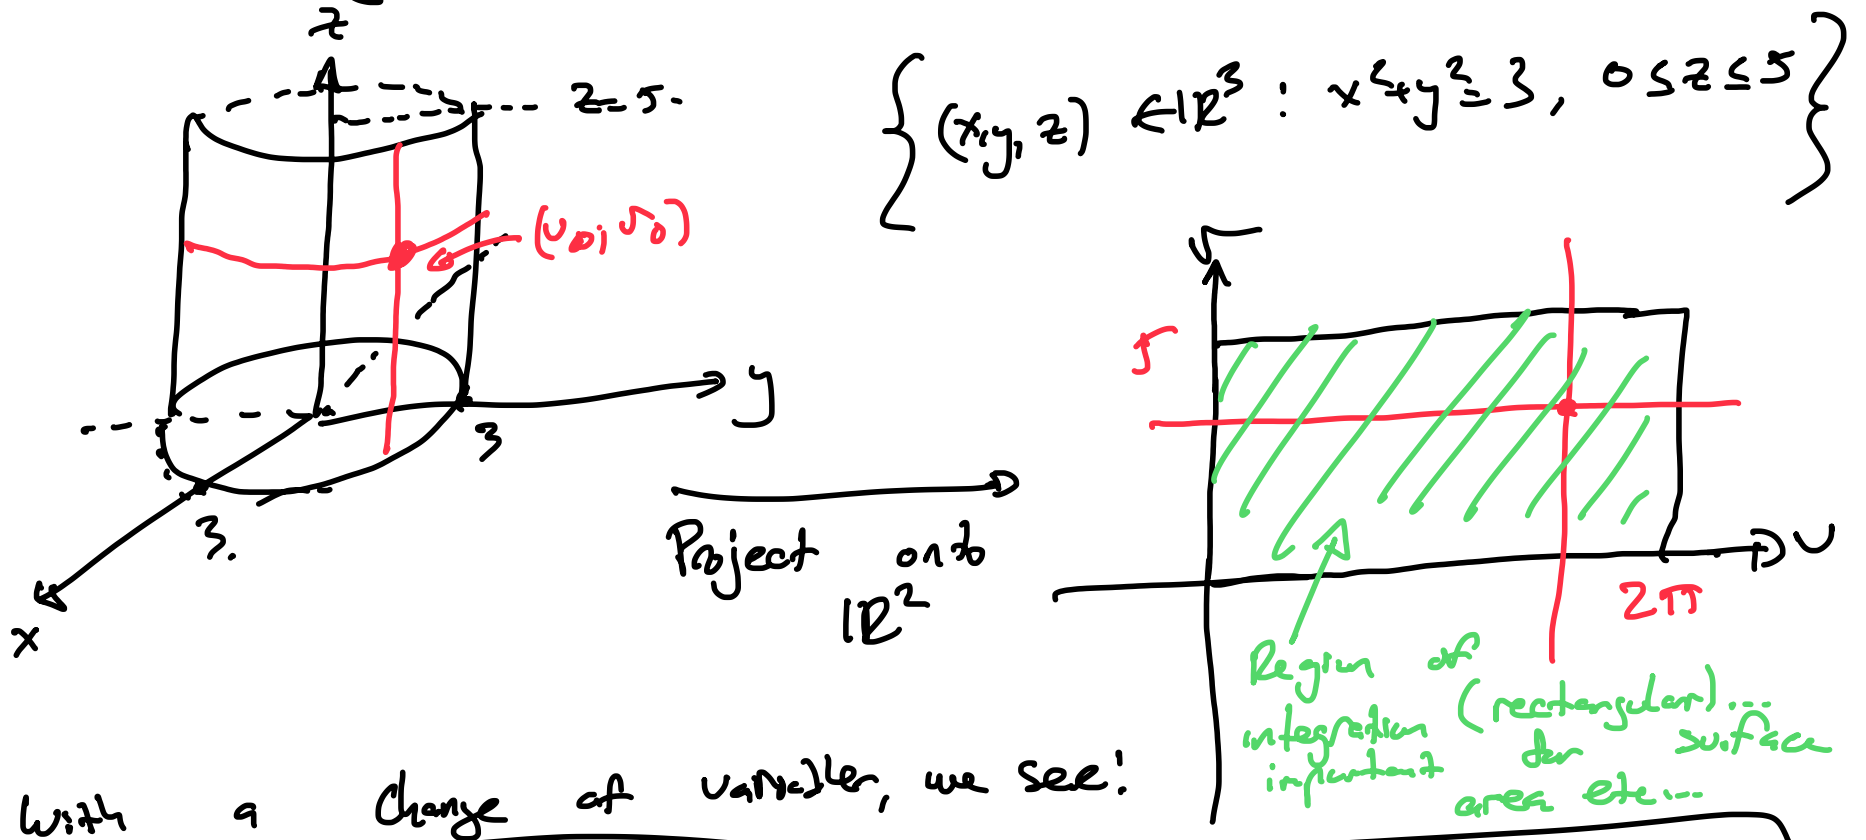 z
z=5.
{(x,y,z) ∈ ℝ³ : x²+y²=3, 0≤z≤5}
(u₀, v₀)
v
5
y
3
3.
x
Project onto
ℝ²
u
2π
Region of
integration (rectangular)...
important for surface
area etc...
With a change of variables, we see!